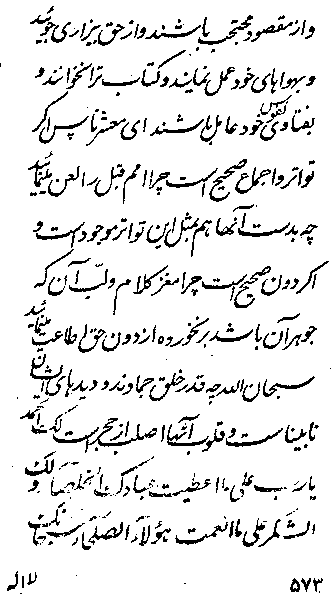 و از مقصود محتجب باشند و از حق بیزاری جویند
و بهواهای خود عمل نمایند و کتاب ترا نخوانند و
بفتاوی نفوس خود عامل باشند ای معشر ناس اگر
تواتر و اجماع صحیح است چرا امم قبل را لعن مینمائید
چه بدست آنها هم مثل این تواتر موجود است و
اگر دون صحیح است چرا مغز کلام و لبّ آن که
جوهر آن باشد بر نخورده از دون حق اطاعت مینمائید
سبحان الله چه قدر خلق جمادند و دیدهای ایشان
نابیناست و قلوب آنها اصلب از حجر است لک الحمد
یا رب علی ما اعطیت عبادک المخلصین و لک
الشکر علی ما انعمت هؤلاء الصلحاء سبحانک
۵۷۳